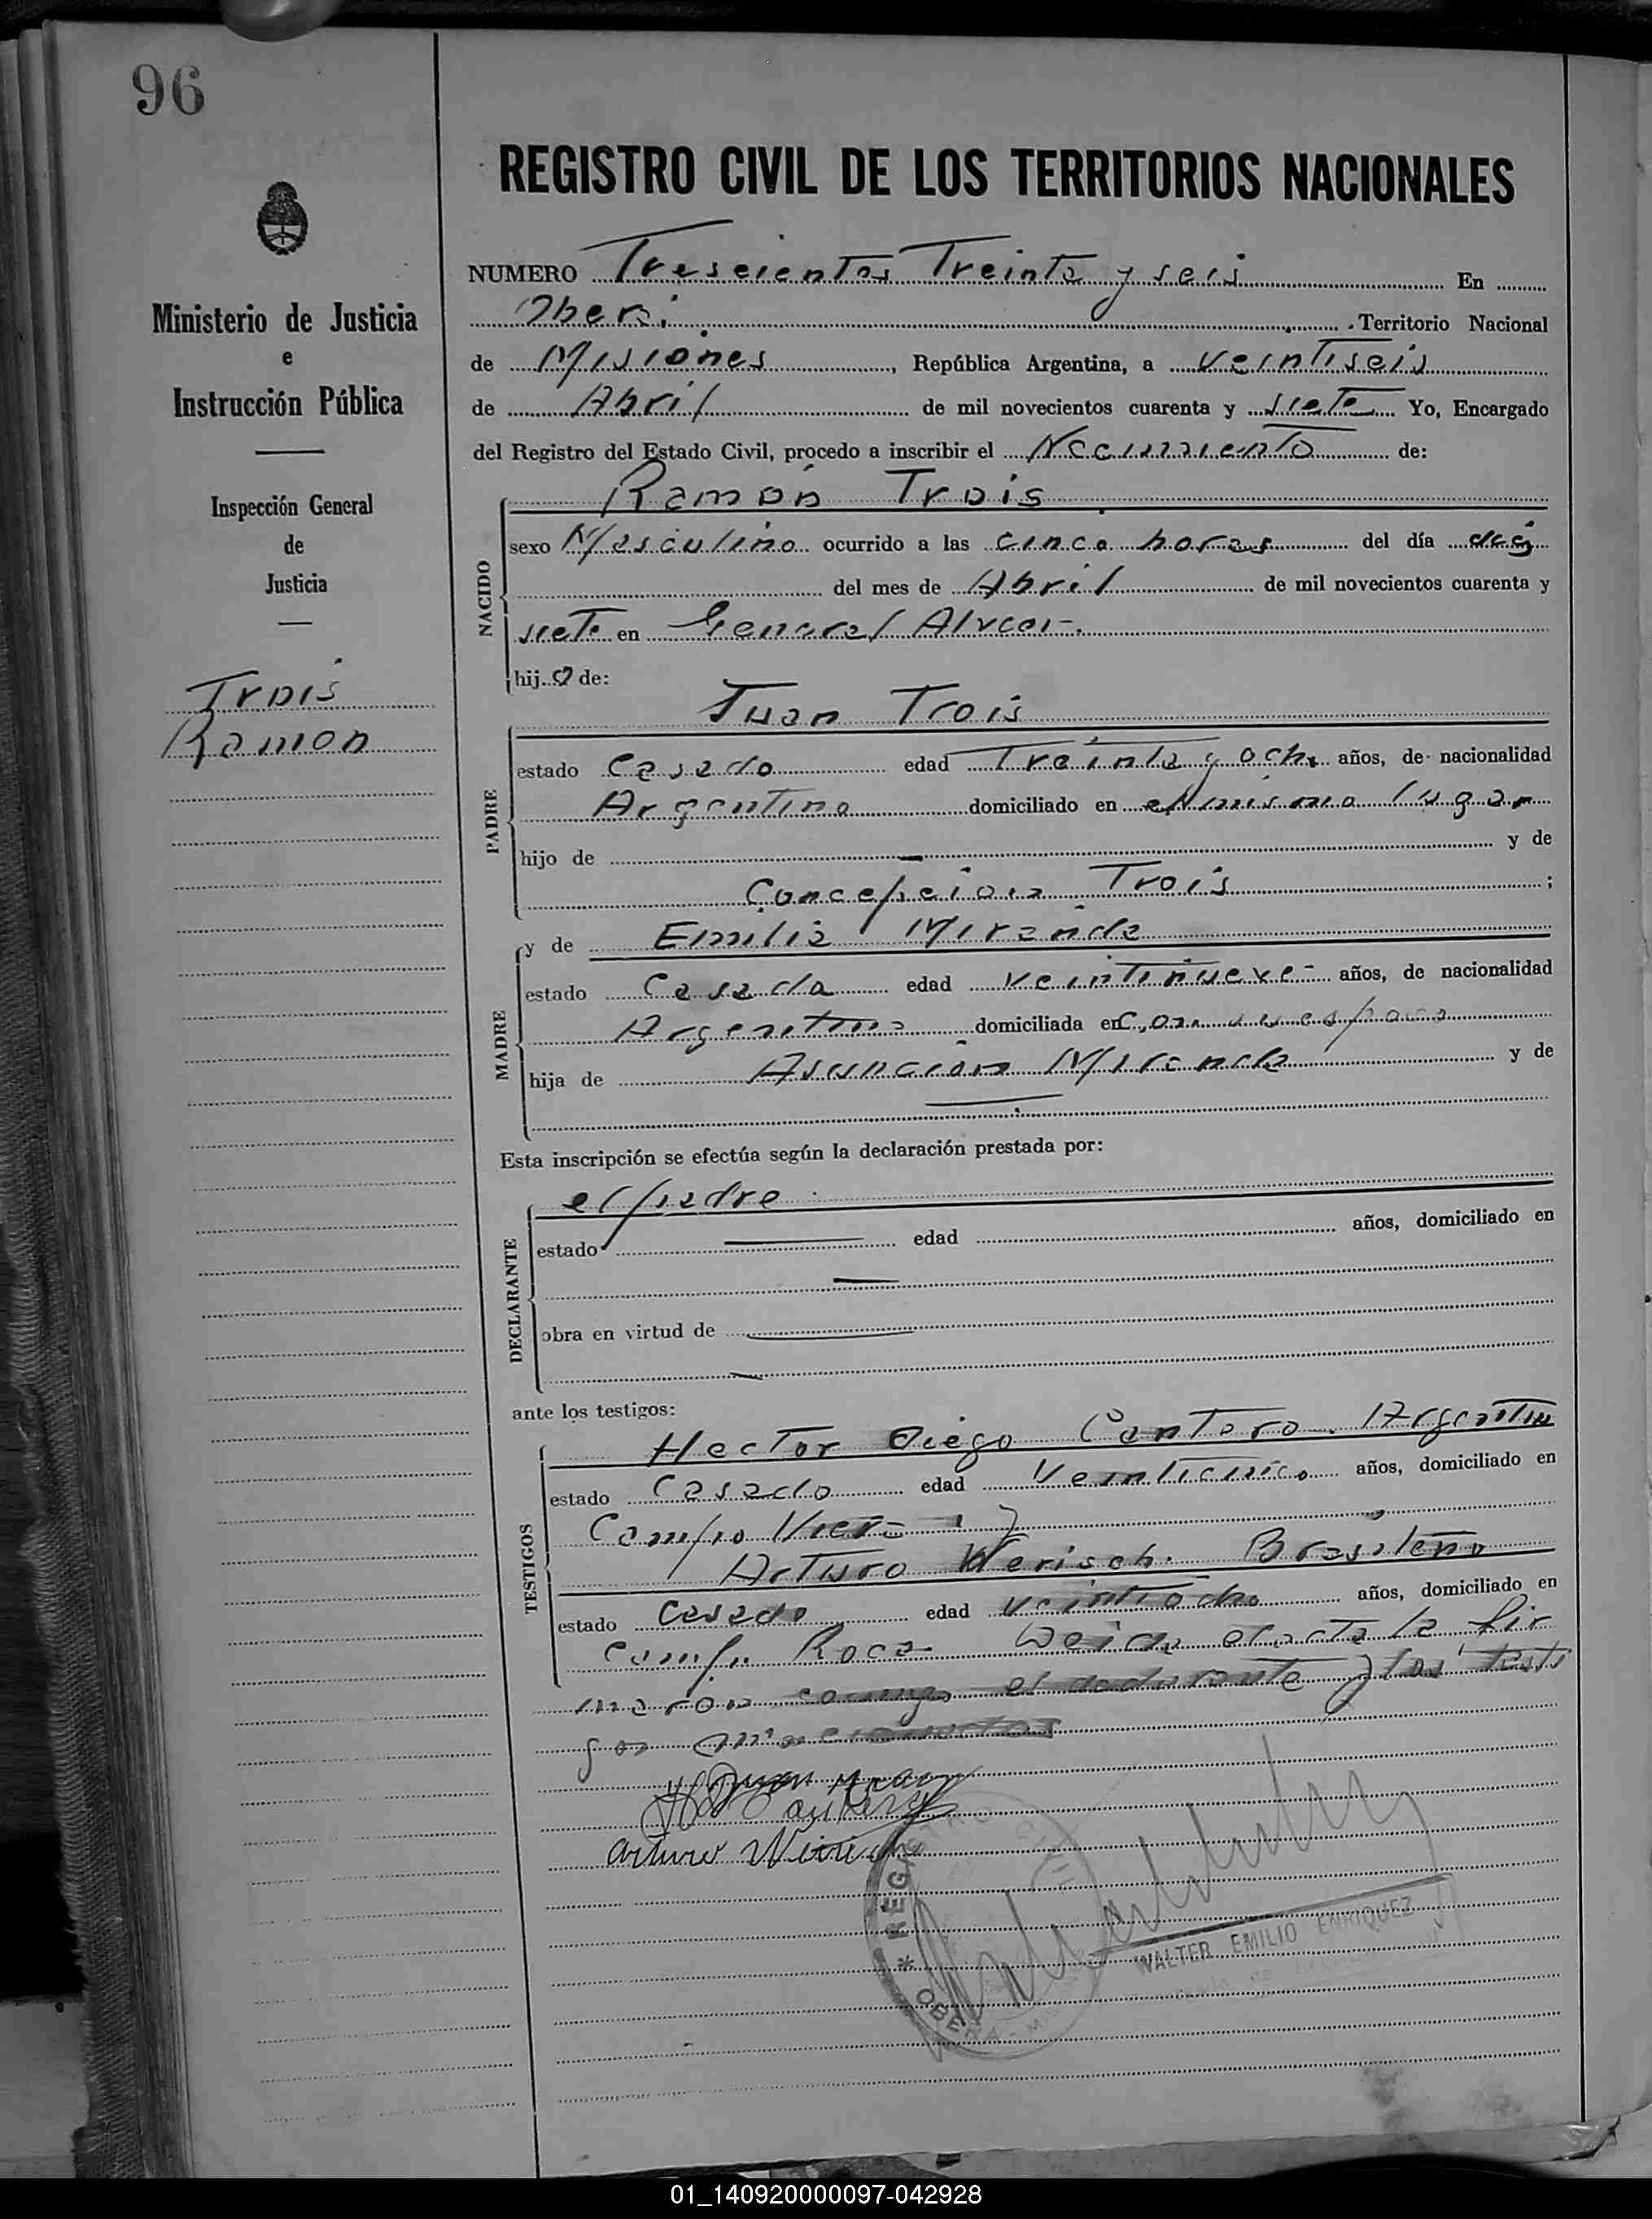 96
REGISTRO CIVIL DE LOS TERRITORIOS NACIONALES
Ministerio de Justicia
e
Instrucción Pública
Inspección General
de
Justicia
Trois
Ramon
NUMERO Trescientos Treinta y seis En
Oberá Territorio Nacional
de Misiones, República Argentina, a veintiseis
de Abril de mil novecientos cuarenta y siete Yo, Encargado
del Registro del Estado Civil, procedo a inscribir el Nacimiento de:
Ramón Trois
NACIDO
sexo Masculino ocurrido a las cinco horas del día
del mes de Abril de mil novecientos cuarenta y
siete en General Alvear.
hijo de:
Juan Trois
PADRE
estado Casado edad Treinta y ocho años, de nacionalidad
Argentino domiciliado en el mismo lugar
hijo de — y de
Concepcion Trois;
y de Emilia Miranda
MADRE
estado Casada edad veintinueve años, de nacionalidad
Argentina domiciliada en con su esposo
hija de Asunción Miranda y de
Esta inscripción se efectúa según la declaración prestada por:
el padre
DECLARANTE
estado edad años, domiciliado en
obra en virtud de
ante los testigos:
Hector Diego Cantero. Argentino
TESTIGOS
estado Casado edad Veinticinco años, domiciliado en
Campo Viera y
Arturo Werisch. Brasileño
estado casado edad veintiocho años, domiciliado en
Campo Roca Leida el acta la fir
maron conmigo el declarante y los testi
gos mencionados
Arturo
REGISTRO CIVIL
* OBERA - M
WALTER EMILIO ENRIQUEZ
01_140920000097-042928